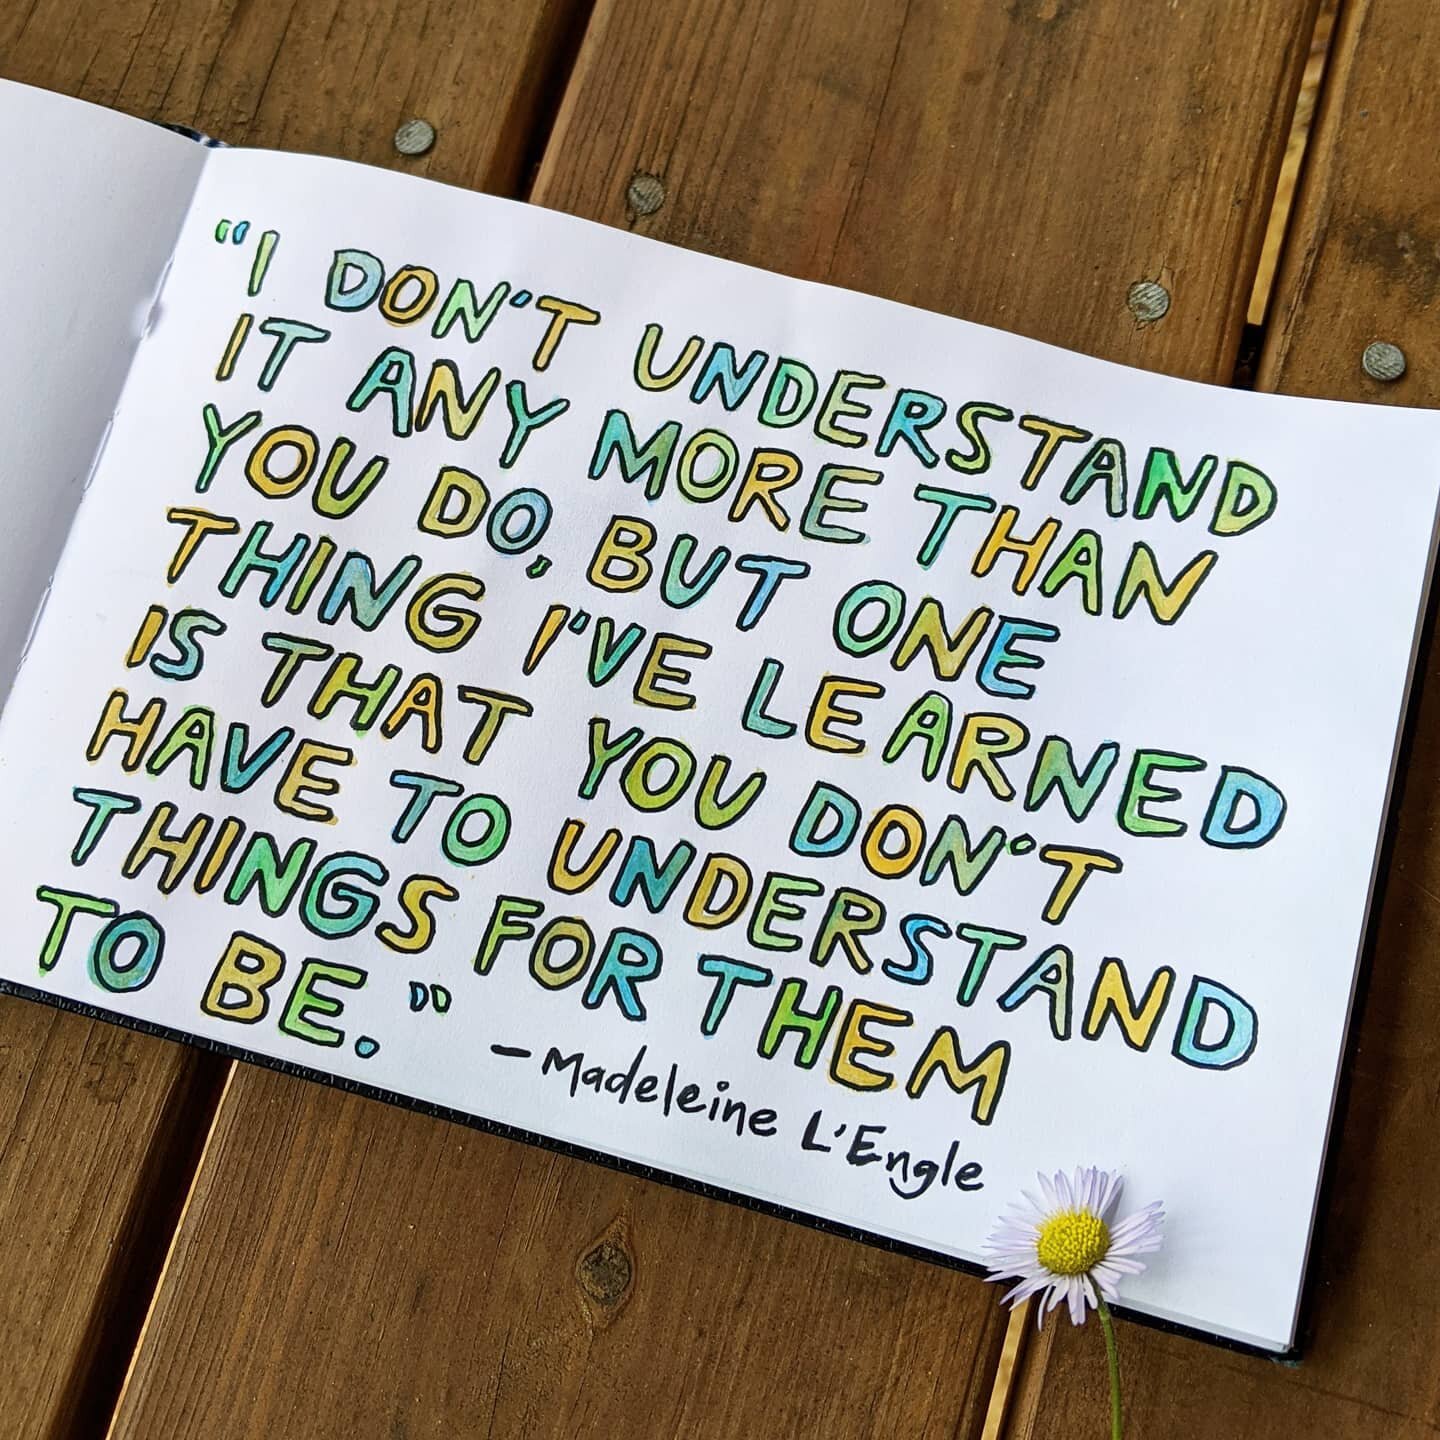 "I DON'T UNDERSTAND
IT ANY MORE THAN
YOU DO, BUT ONE
THING I'VE LEARNED
IS THAT YOU DON'T
HAVE TO UNDERSTAND
THINGS FOR THEM
TO BE."
—Madeleine L'Engle